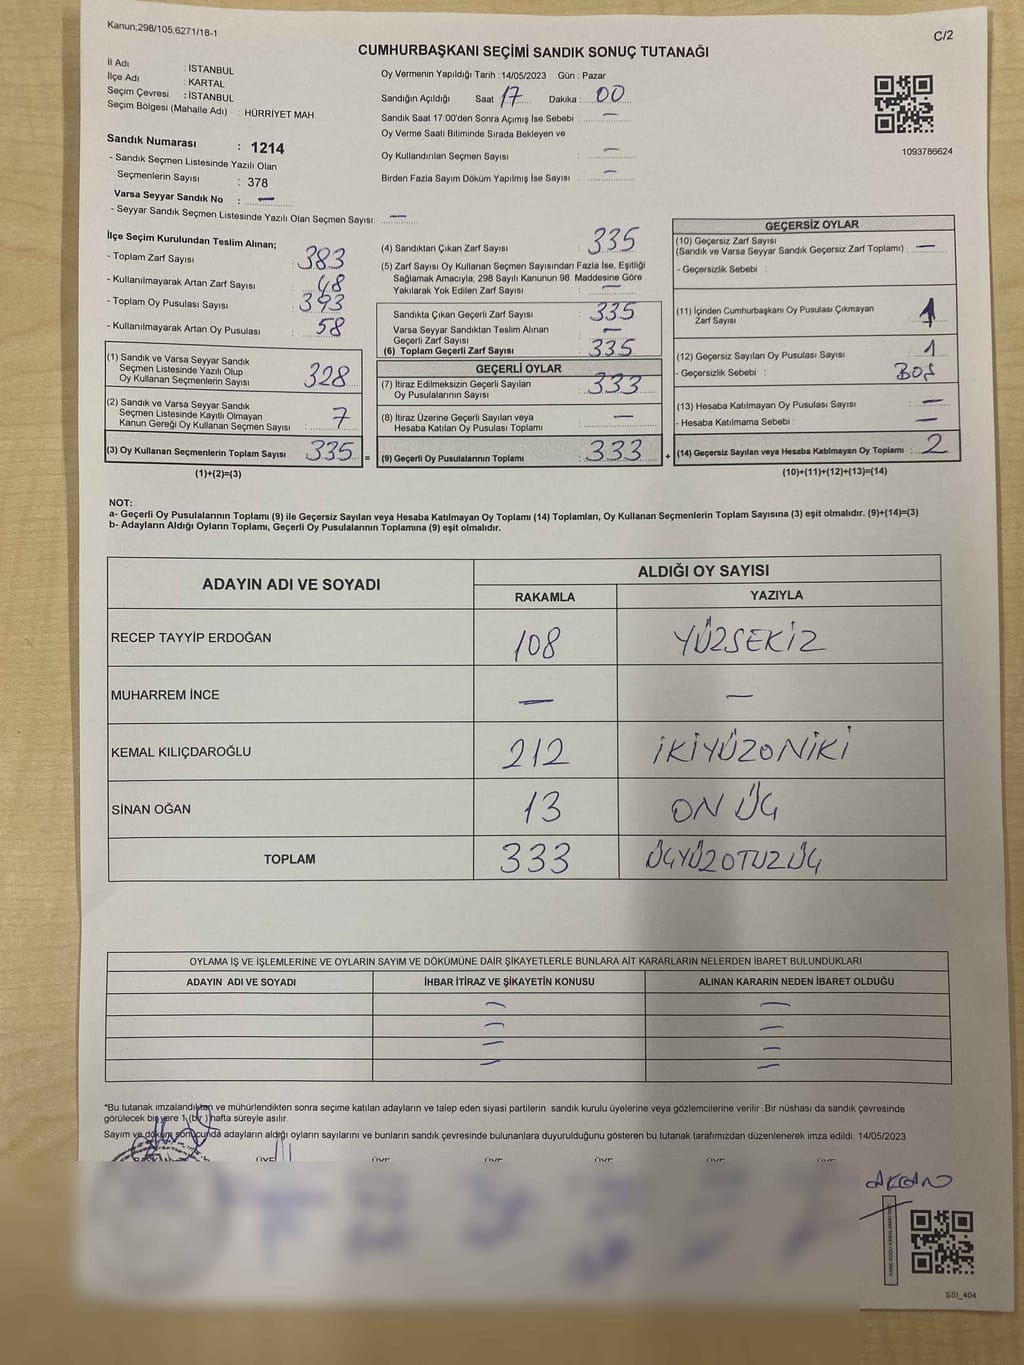 Kanun;298/105,6271/18-1
C/2
CUMHURBAŞKANI SEÇİMİ SANDIK SONUÇ TUTANAĞI
İl Adı : İSTANBUL
İlçe Adı : KARTAL
Seçim Çevresi : İSTANBUL
Seçim Bölgesi (Mahalle Adı) : HÜRRİYET MAH.
Oy Vermenin Yapıldığı Tarih : 14/05/2023 Gün : Pazar
Sandığın Açıldığı Saat 17 Dakika : 00
Sandık Saat 17:00'den Sonra Açımış İse Sebebi : —
Oy Verme Saati Bitiminde Sırada Bekleyen ve
Oy Kullandırılan Seçmen Sayısı : —
Birden Fazla Sayım Döküm Yapılmış İse Sayısı : —
1093786624
Sandık Numarası : 1214
- Sandık Seçmen Listesinde Yazılı Olan
Seçmenlerin Sayısı : 378
Varsa Seyyar Sandık No : —
- Seyyar Sandık Seçmen Listesinde Yazılı Olan Seçmen Sayısı: —
İlçe Seçim Kurulundan Teslim Alınan;
- Toplam Zarf Sayısı : 383
- Kullanılmayarak Artan Zarf Sayısı : 48
- Toplam Oy Pusulası Sayısı : 393
- Kullanılmayarak Artan Oy Pusulası : 58
(1) Sandık ve Varsa Seyyar Sandık
Seçmen Listesinde Yazılı Olup
Oy Kullanan Seçmenlerin Sayısı : 328
(2) Sandık ve Varsa Seyyar Sandık
Seçmen Listesinde Kayıtlı Olmayan
Kanun Gereği Oy Kullanan Seçmen Sayısı : 7
(3) Oy Kullanan Seçmenlerin Toplam Sayısı : 335
(1)+(2)=(3)
(4) Sandıktan Çıkan Zarf Sayısı : 335
(5) Zarf Sayısı Oy Kullanan Seçmen Sayısından Fazla İse, Eşitliği
Sağlamak Amacıyla; 298 Sayılı Kanunun 98. Maddesine Göre
Yakılarak Yok Edilen Zarf Sayısı : —
Sandıkta Çıkan Geçerli Zarf Sayısı : 335
Varsa Seyyar Sandıktan Teslim Alınan
Geçerli Zarf Sayısı : —
(6) Toplam Geçerli Zarf Sayısı : 335
GEÇERLİ OYLAR
(7) İtiraz Edilmeksizin Geçerli Sayılan
Oy Pusulalarının Sayısı : 333
(8) İtiraz Üzerine Geçerli Sayılan veya
Hesaba Katılan Oy Pusulası Toplamı : —
= (9) Geçerli Oy Pusulalarının Toplamı : 333 +
GEÇERSİZ OYLAR
(10) Geçersiz Zarf Sayısı
(Sandık ve Varsa Seyyar Sandık Geçersiz Zarf Toplamı) : —
- Geçersizlik Sebebi :
(11) İçinden Cumhurbaşkanı Oy Pusulası Çıkmayan
Zarf Sayısı : 1
(12) Geçersiz Sayılan Oy Pusulası Sayısı : 1
- Geçersizlik Sebebi : BOŞ
(13) Hesaba Katılmayan Oy Pusulası Sayısı : —
- Hesaba Katılmama Sebebi : —
(14) Geçersiz Sayılan veya Hesaba Katılmayan Oy Toplamı : 2
(10)+(11)+(12)+(13)=(14)
NOT:
a- Geçerli Oy Pusulalarının Toplamı (9) ile Geçersiz Sayılan veya Hesaba Katılmayan Oy Toplamı (14) Toplamları, Oy Kullanan Seçmenlerin Toplam Sayısına (3) eşit olmalıdır. (9)+(14)=(3)
b- Adayların Aldığı Oyların Toplamı, Geçerli Oy Pusulalarının Toplamına (9) eşit olmalıdır.
ADAYIN ADI VE SOYADI ALDIĞI OY SAYISI
RAKAMLA YAZIYLA
RECEP TAYYİP ERDOĞAN 108 YÜZSEKİZ
MUHARREM İNCE — —
KEMAL KILIÇDAROĞLU 212 İKİYÜZONİKİ
SİNAN OĞAN 13 ON ÜÇ
TOPLAM 333 ÜÇYÜZOTUZÜÇ
OYLAMA İŞ VE İŞLEMLERİNE VE OYLARIN SAYIM VE DÖKÜMÜNE DAİR ŞİKAYETLERLE BUNLARA AİT KARARLARIN NELERDEN İBARET BULUNDUKLARI
ADAYIN ADI VE SOYADI İHBAR İTİRAZ VE ŞİKAYETİN KONUSU ALINAN KARARIN NEDEN İBARET OLDUĞU
— —
— —
— —
— —
*Bu tutanak imzalandıktan ve mühürlendikten sonra seçime katılan adayların ve talep eden siyasi partilerin sandık kurulu üyelerine veya gözlemcilerine verilir .Bir nüshası da sandık çevresinde
görülecek bir yere 1 (bir ) hafta süreyle asılır.
Sayım ve döküm sonucunda adayların aldığı oyların sayılarını ve bunların sandık çevresinde bulunanlara duyurulduğunu gösteren bu tutanak tarafımızdan düzenlenerek imza edildi. 14/05/2023
BAŞKAN ÜYE ÜYE ÜYE ÜYE ÜYE ÜYE
SSI_404